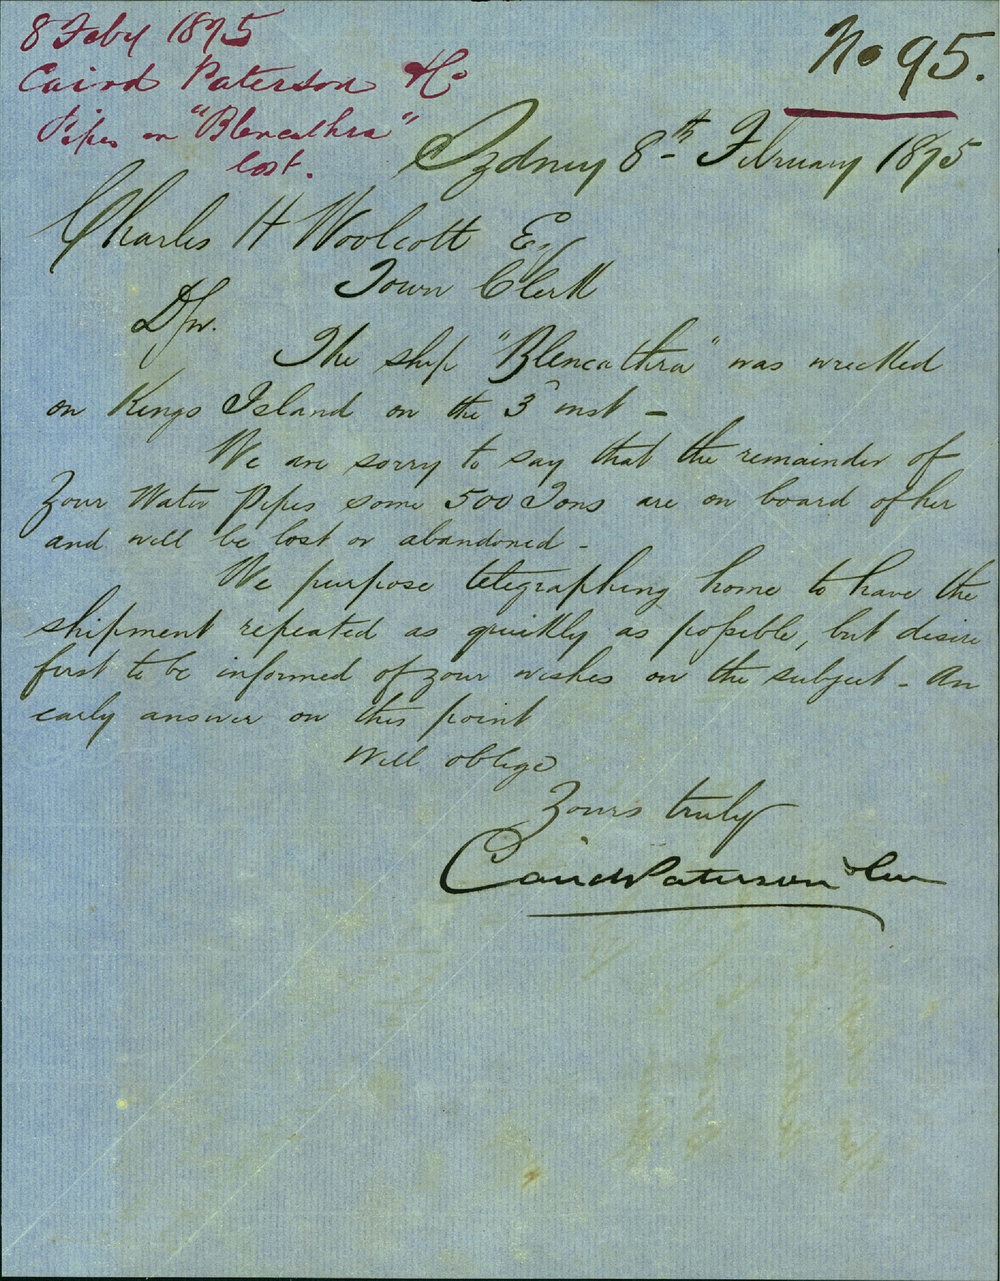 8 Feby 1875
Caird Paterson & Co
Pipes on "Blencathra"
lost.
No 95.
Sydney 8th February 1875
Charles H Woolcott Esq
Town Clerk
D Sir.
The ship "Blencathra" was wrecked
on Kings Island on the 3d inst -
We are sorry to say that the remainder of
your Water Pipes some 500 Tons are on board of her
and will be lost or abandoned -
We purpose telegraphing home to have the
shipment repeated as quickly as possible, but desire
first to be informed of your wishes on the subject - An
early answer on this point
will oblige
Yours truly
Caird Paterson & Co